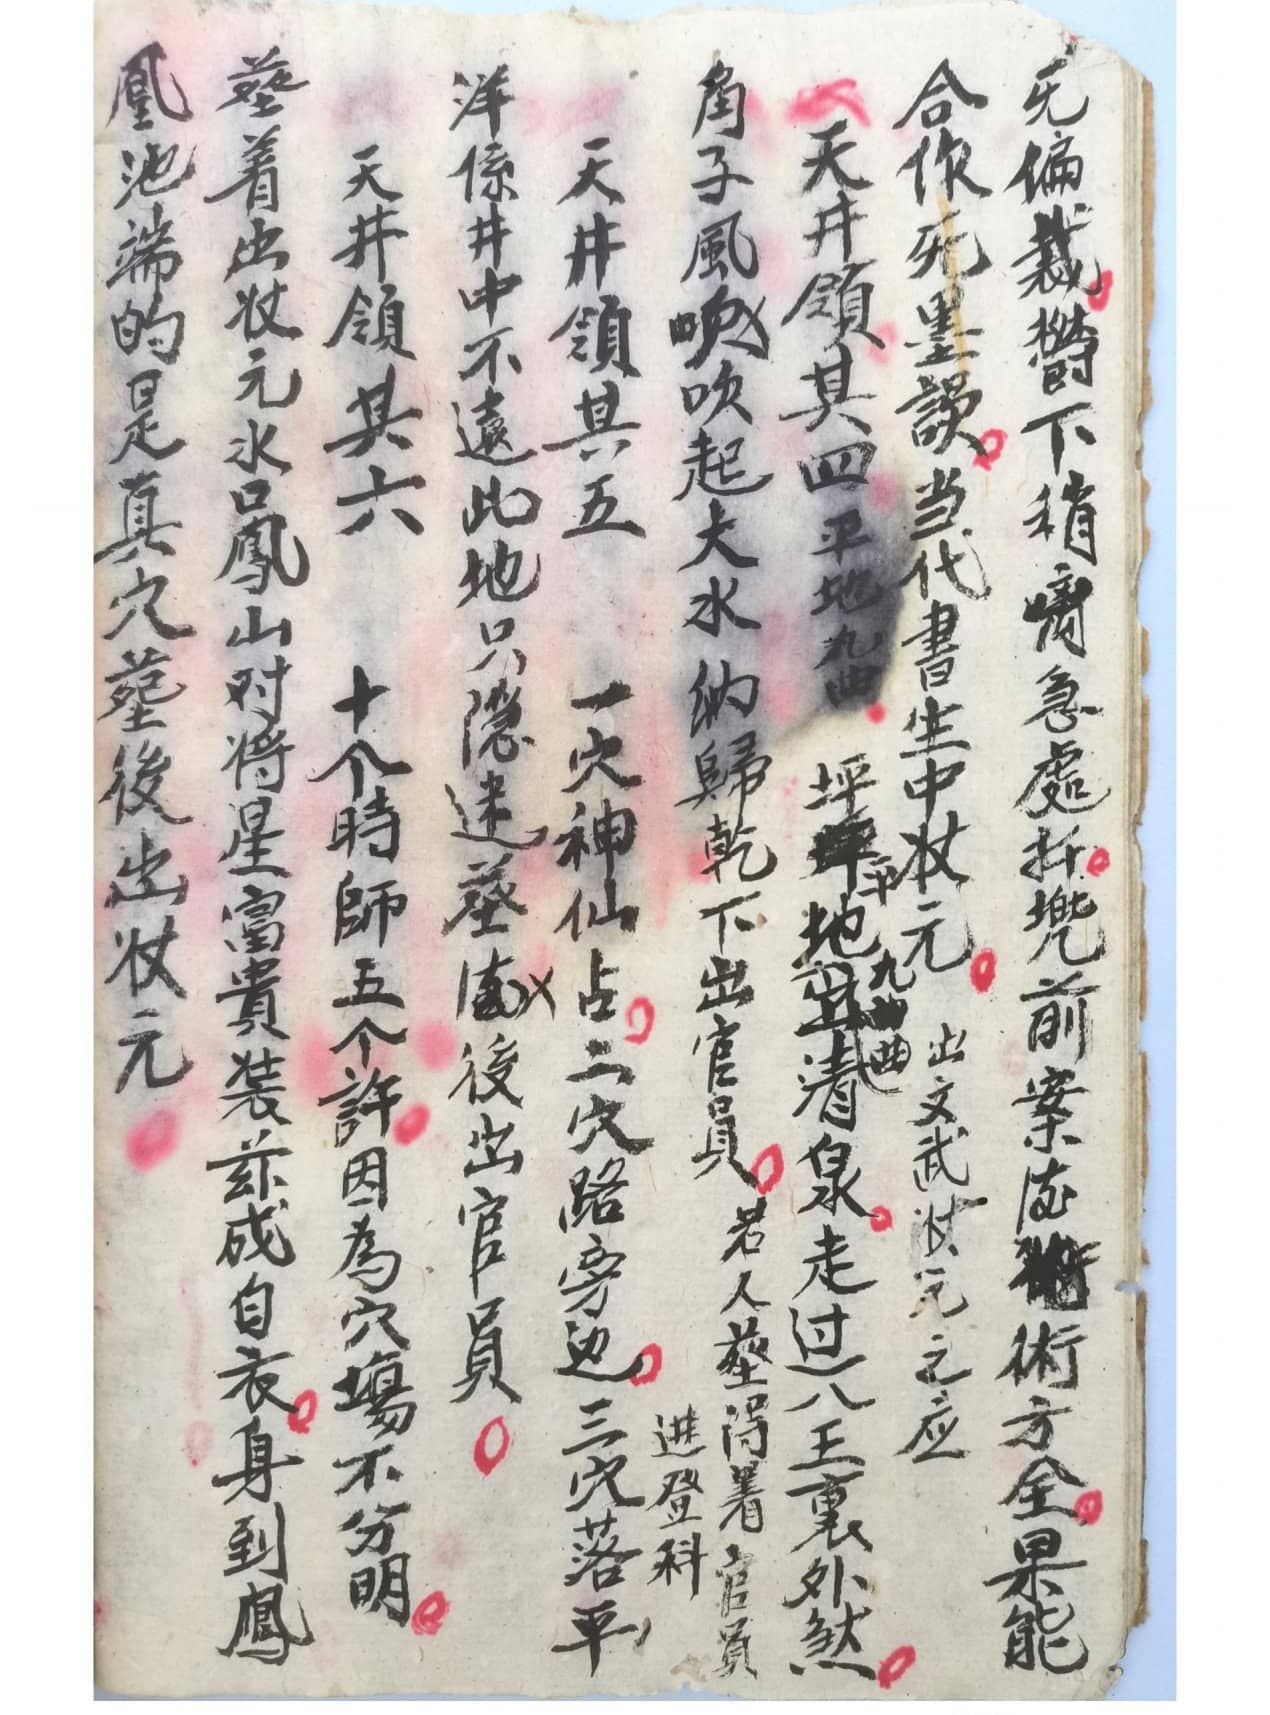 无偏裁欝下稍嘴急處折㙮前案応術方全果能
合作死墨談当代書生中状元 出文武状元之应
天井領其四 平地九曲 坪平地九曲出清泉走过八王裏外煞
角子風吹起大水納歸乾下出官員 若人塟得着官員
進登科
天井領其五 一穴神仙占二穴路旁边三穴落平
洋係井中不遠此地只隐迷塟後出官員
天井領其六 十个時師五个許因為穴塲不分明
塟着出状元水口鳳山对将星富貴装兹成自衣身到鳳
凰池端的是真穴塟後出状元